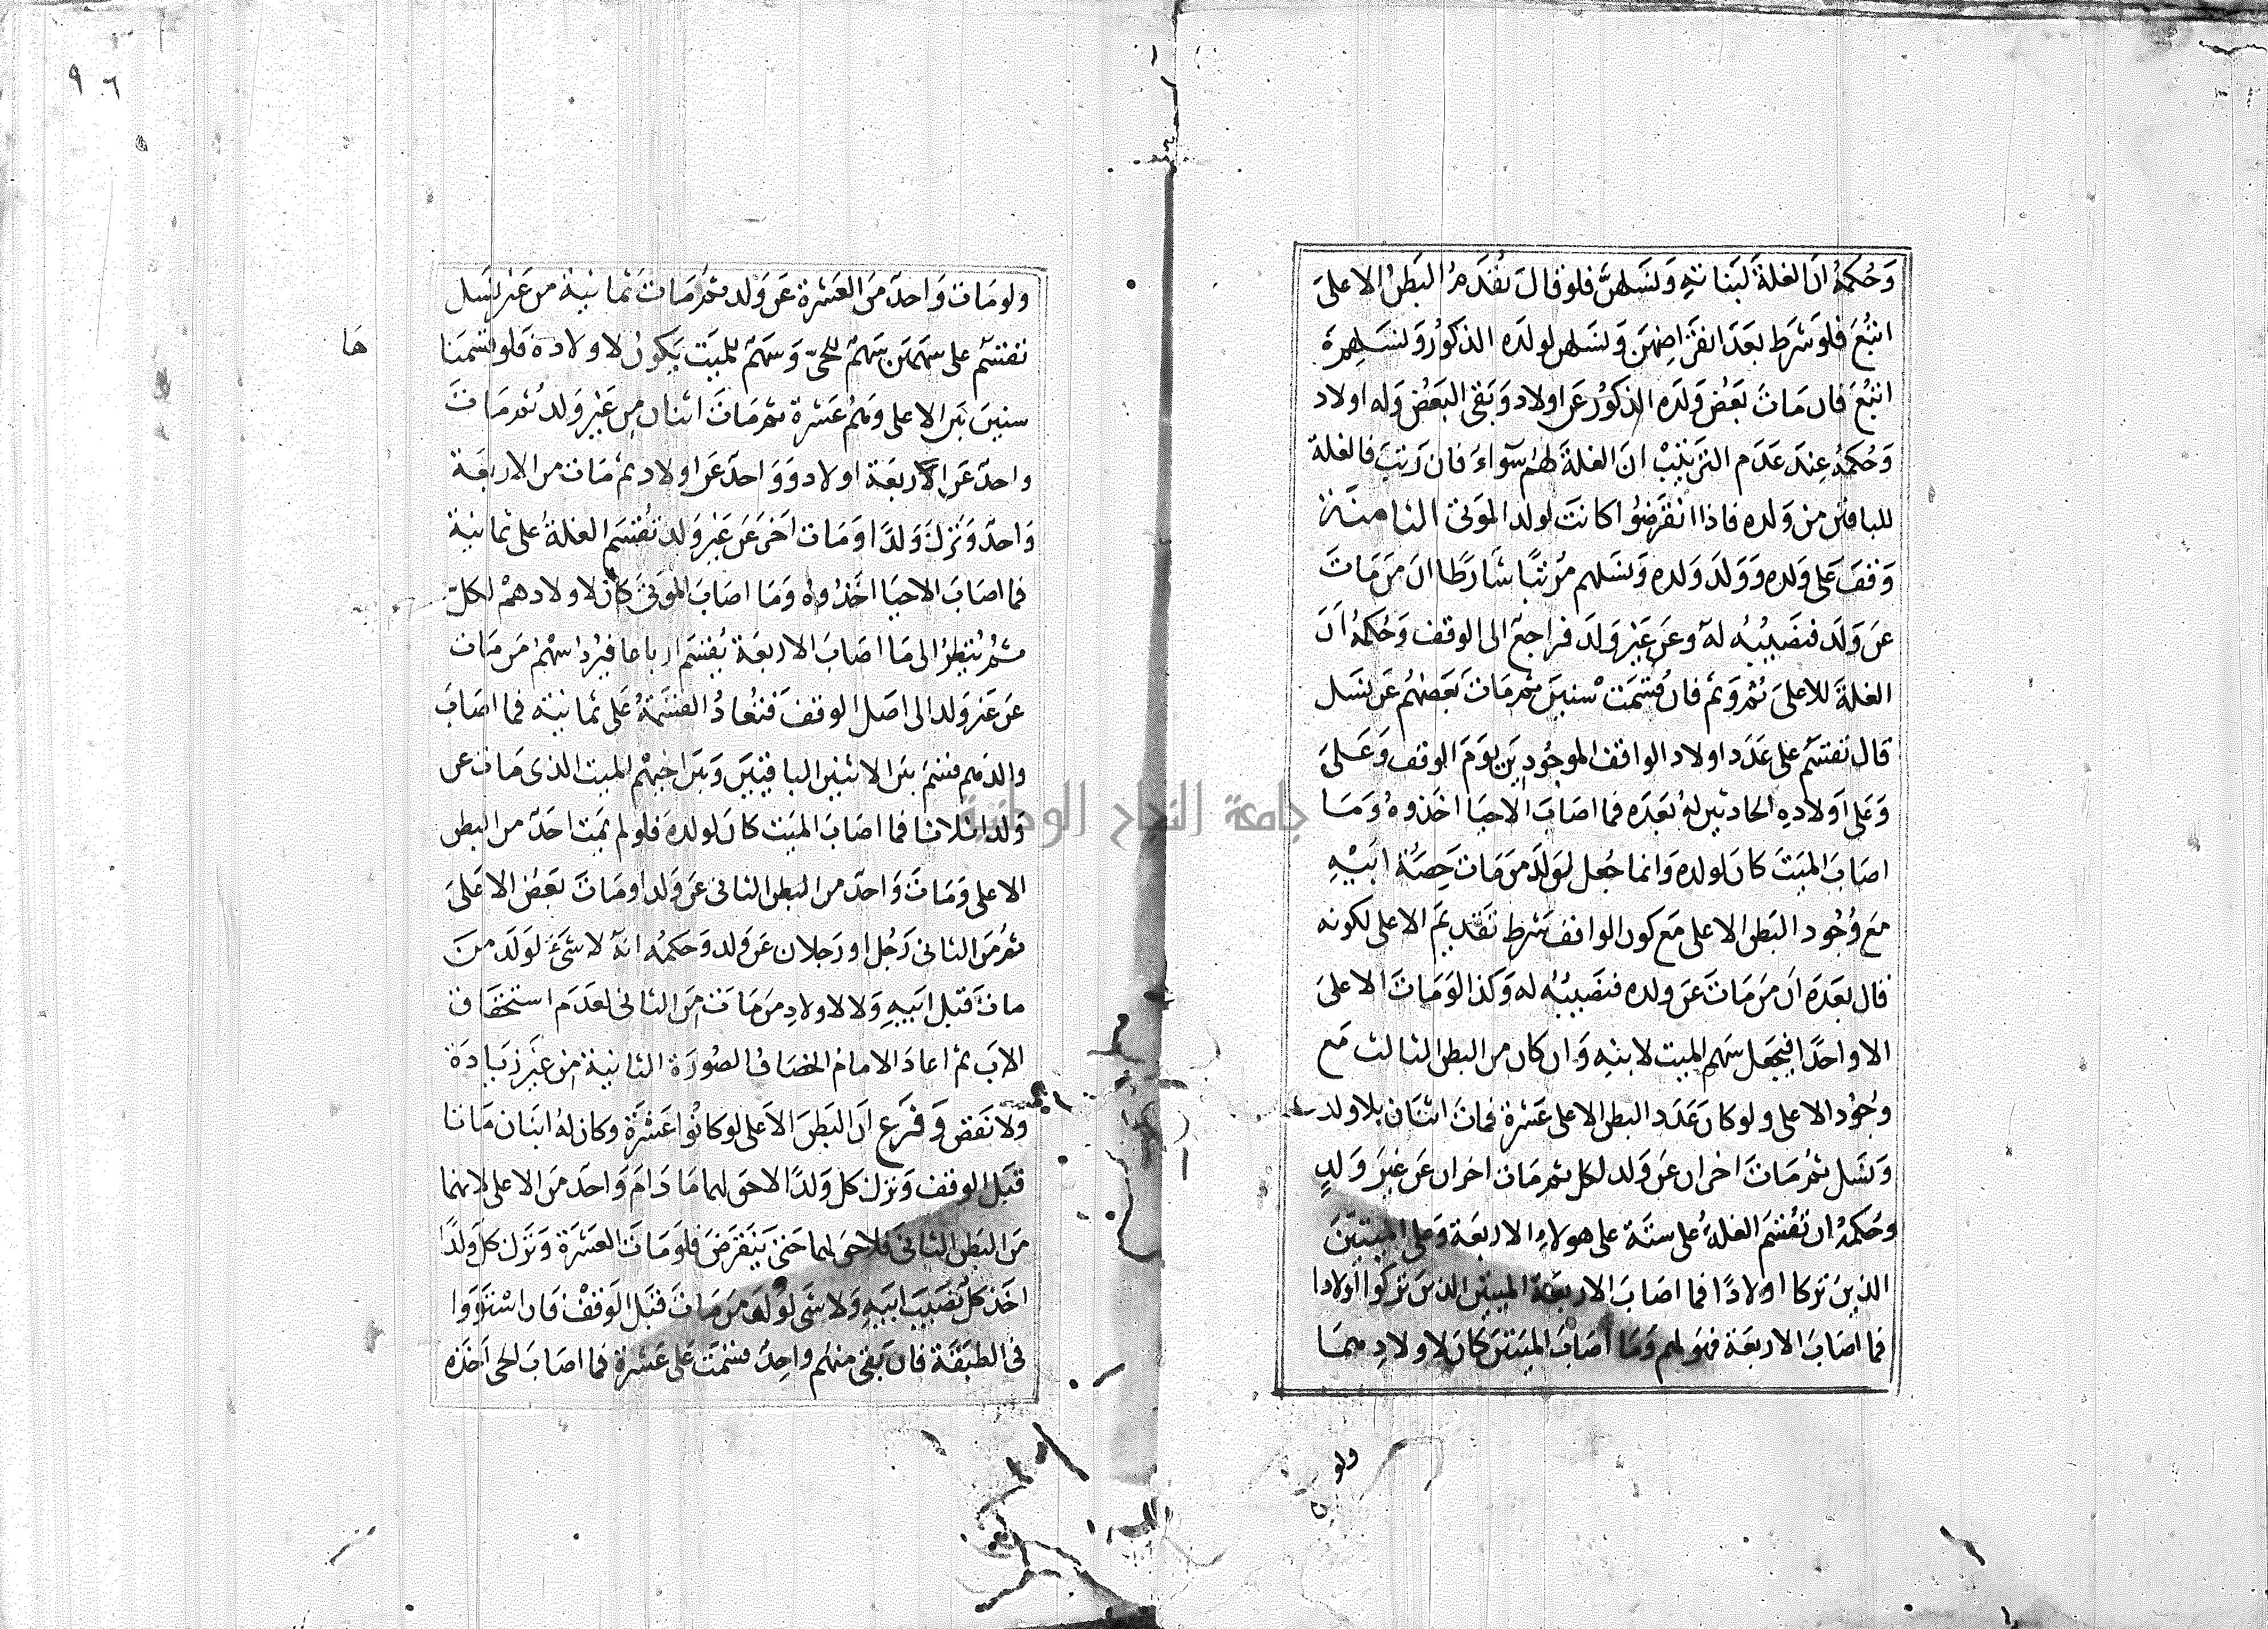 وحكمه ان الغلة لبناته ونسلهن فلو قال تقدم البطن الاعلى
اتبع فلو شرط بعد انقراضهن ونسلهن لولده الذكور ونسلهم
اتبع فان مات بعض ولده الذكور عن اولاد وبقى البعض وله اولاد
وحكمه عند عدم الترتيب ان الغلة لهم سوآء فان رتب فالغلة
للباقين من ولده فاذا انقرضوا كانت لولد الموتى الثامنة
وقف على ولده وولد ولده ونسلهم مرتبا شارطا ان من مات
عن ولد فنصيبه له وعن غير ولد فراجع الى الوقف وحكمه ان
الغلة للاعلى ثم وثم فان قسمت سنين ثم مات بعضهم عن نسل
قال تقسم على عدد اولاد الواقف الموجودين يوم الوقف وعلى
وعلى اولاده الحادثين له بعده فما اصاب الاحيا اخذوه وما
اصاب الميت كان لولده وانما جعل لولد من مات حصة ابيه
مع وجود البطن الاعلى مع كون الواقف شرط تقديم الاعلى لكونه
قال بعده ان من مات عن ولده فنصيبه له وكذا لو مات الاعلى
الا واحدا فيجعل سهم الميت لابنه وان كان من البطن الثالث مع
وجود الاعلى ولو كان عدد البطن الاعلى عشرة فمات اثنان بلا ولد
ونسل ثم مات اخران عن ولد لكل ثم مات اخران عن غير ولد
وحكمه ان تقسم الغلة على ستة على هولاء الاربعة وعلى الميتين
الذين تركا اولادا فما اصاب الاربعة الميتين الذين تركوا اولادا
فما اصاب الاربعة فهو لهم وما اصاب الميتين كان لاولادهما
ولو
٩٦
ولو مات واحد من العشرة عن ولد ثم مات ثمانية من غير نسل
تقسم على سهمين سهم للحي وسهم للميت يكون لاولاده فلو قسمنا
ها
سنين بين الاعلى وهم عشرة ثم مات اثنان من غير ولد ثم مات
واحد عن اربعة اولاد وواحد عن اولاد ثم مات من الاربعة
واحد وترك ولدا ومات اخر عن غير ولد تقسم الغلة على ثمانية
فما اصاب الاحيا اخذوه وما اصاب الموتى كان لاولادهم لكل
ثم ينظر الى ما اصاب الاربعة يقسم ارباعا فيرد سهم من مات
عن غير ولد الى اصل الوقف فتعاد القسمة على ثمانية فما اصاب
والدهم قسم بين الاثنين الباقيين وبين اخيهم الميت الذى مات عن
ولد اثلاثا فما اصاب الميت كان لولده فلو لم يمت احد من البطن
الاعلى ومات واحد من البطن الثانى عن ولد او مات بعض الاعلى
ثم من الثانى رجل او رجلان عن ولد وحكمه انه لا شىء لولد من
مات قبل ابيه ولا لاولاد من مات من الثانى لعدم استحقاق
الاب ثم اعاد الامام الخصاف الصورة الثانية من غير زيادة
ولا نقض وفرع ان البطن الاعلى لو كانوا عشرة وكان له ابنان ماتا
قبل الوقف وترك كل ولدا لا حق لهما ما دام واحد من الاعلى لانهما
من البطن الثانى فلا حق لهما حتى ينقرض فلو مات العشرة وترك كل ولدا
اخذ كل نصيب ابيه ولا شى لولد من مات قبل الوقف فان استووا
فى الطبقة فان بقى منهم واحد قسمت على عشرة فما اصاب الحى اخذه
جامعة النجاح الوطنية